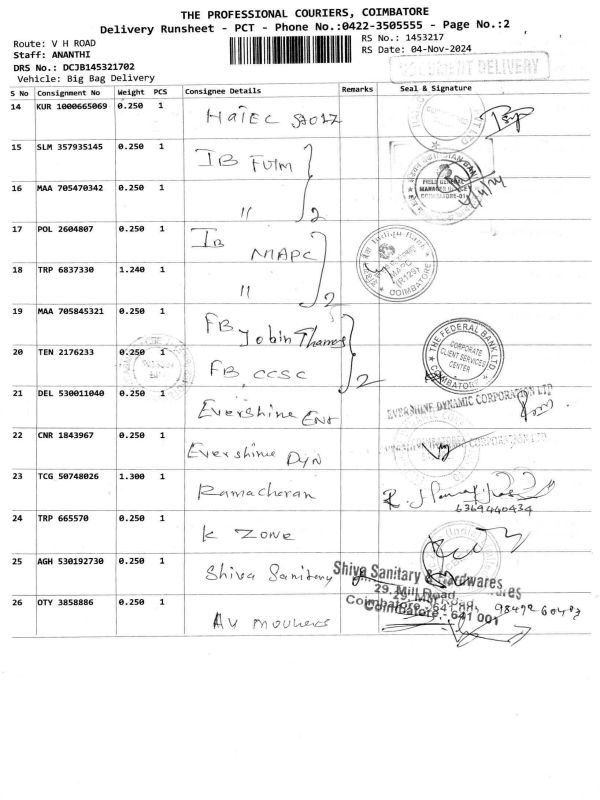 THE PROFESSIONAL COURIERS, COIMBATORE
Delivery Runsheet - PCT - Phone No.:0422-3505555 - Page No.:2
Route: V H ROAD
RS No.: 1453217
Staff: ANANTHI
RS Date: 04-Nov-2024
DRS No.: DCJB145321702
DELIVERY
Vehicle: Big Bag Delivery
S No Consignment No Weight PCS Consignee Details Remarks Seal & Signature
14 KUR 1000665069 0.250 1
15 SLM 357935145 0.250 1 IB
16 MAA 705470342 0.250 1 " 2
17 POL 2604807 0.250 1 IB MAPC
Indian Bank
MAPC
COIMBATORE
18 TRP 6837330 1.240 1 " 2
19 MAA 705845321 0.250 1 FB Jobin Thomas
20 TEN 2176233 0.250 1 FB CCSC 2
THE FEDERAL BANK LTD
CORPORATE
CLIENT SERVICES
CENTER
COIMBATORE
21 DEL 530011040 0.250 1 Evershine Ent
EVERSHINE DYNAMIC CORPORATION LTD
22 CNR 1843967 0.250 1 Evershine Dyn
CORPORATION LTD
23 TCG 50748026 1.300 1 Ramachoran
6369440434
24 TRP 665570 0.250 1 K Zone
25 AGH 530192730 0.250 1 Shiva Sanitary
Shiva Sanitary & Hardwares
29, Mill Road,
Coimbatore - 641 001
98492 60483
26 OTY 3858886 0.250 1 AV